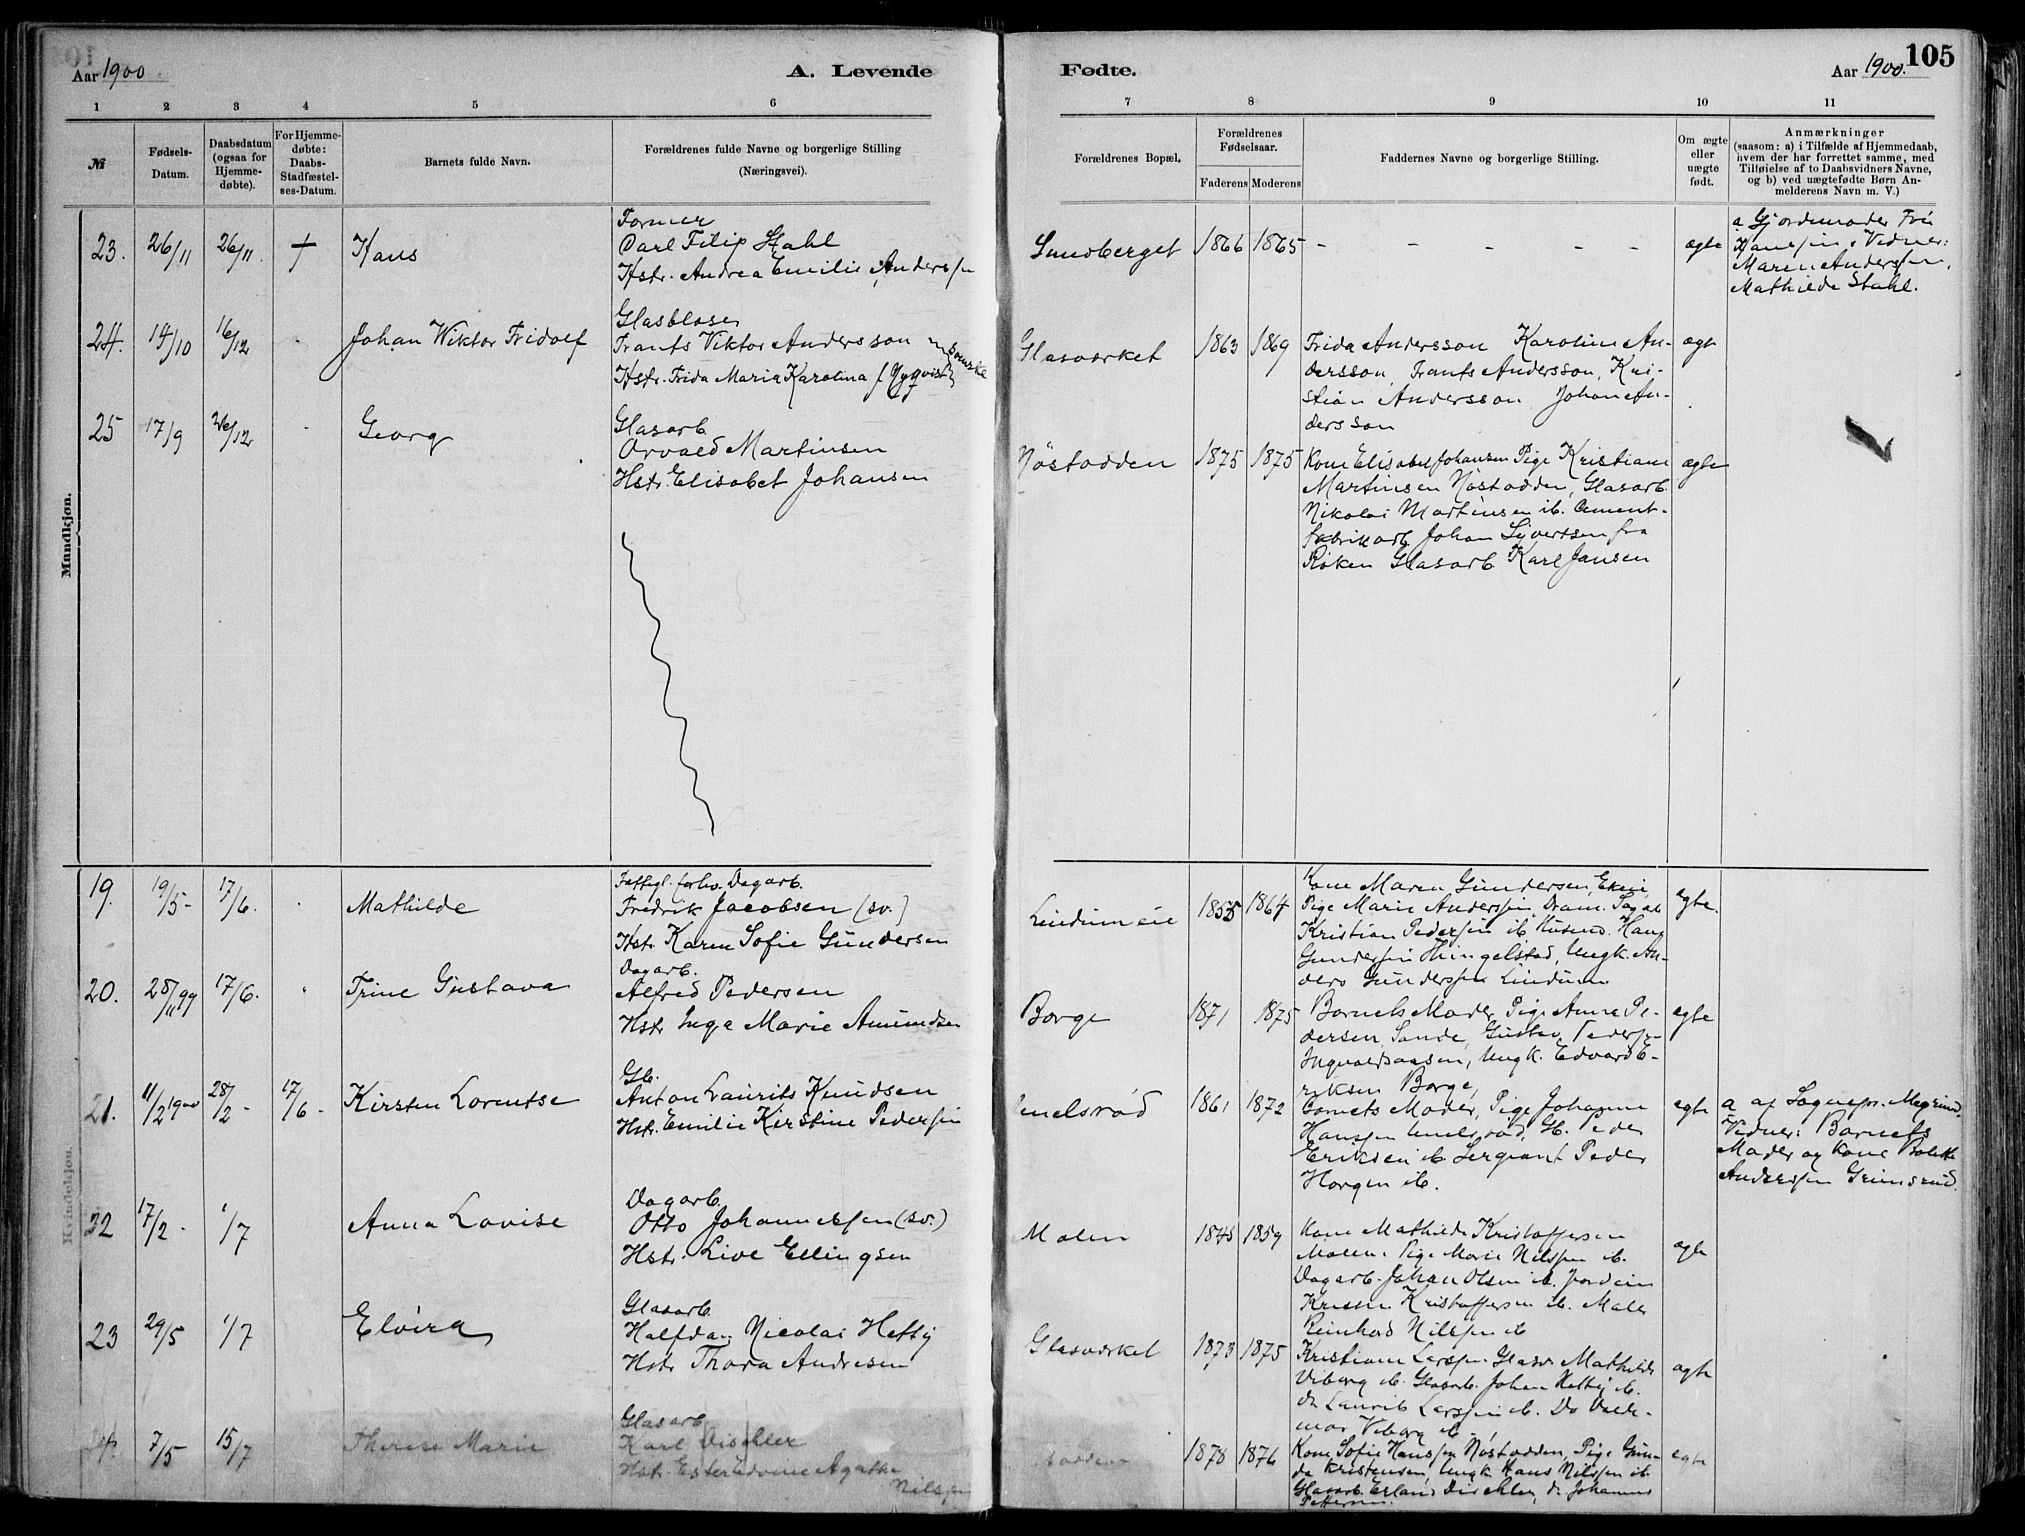 Aar 1900
A. Levende
Fødte.
Aar 1900.
105
1 2 3 4 5 6 7 8 9 10 11
№
Fødsels-
Datum.
Daabsdatum
(ogsaa for
Hjemme-
døbte).
For Hjemme-
døbte:
Daabs-
Stadfæstel-
ses-Datum.
Barnets fulde Navn.
Forældrenes fulde Navne og borgerlige Stilling
(Næringsvei).
Forældrenes Bopæl.
Forældrenes
Fødselsaar.
Faderens Moderens
Faddernes Navne og borgerlige Stilling.
Om ægte
eller
uægte
født.
Anmærkninger
(saasom: a) i Tilfælde af Hjemmedaab,
hvem der har forrettet samme, med
Tilføielse af to Daabsvidners Navne,
og b) ved uægtefødte Børn An-
melderens Navn m. V.)
Mandkjøn.
23. 26/11 26/11. + Hans
Former
Carl Filip Stahl
Hstr. Andrea Emilie Anderssen
Sundberget 1866 1865 - - - - - ægte
a Gjordemoder Fru
Hanssen, Vidner:
Maren Anderssen,
Mathilde Stahl.
24. 14/10 16/12 Johan Wiktor Fridolf
Glasblaser
Frants Viktor Andersson
Hstr. Frida Maria Karolina f. Nyqvist
svenske
Glasværket 1863 1869
Frida Andersson Karoline An-
dersson, Frants Andersson, Kri-
stian Andersson Johan An-
dersson
ægte
25 17/9 26/12 Georg
Glasarb
Orvald Martinsen
Hstr. Elisabet Johansen
Nøstodden 1875 1875
Kone Elisabet Johansen Pige Kristiane
Martinsen Nøstodden, Glasarb.
Nikolai Martinsen ib. Cement-
fabrikarb. Johan Syvertsen fra
Røken Glasarb Karl Jansen
ægte
Kvindekjøn.
19. 19/5- 17/6. Mathilde
Fattigl. forhv. Dagarb.
Fredrik Jacobsen (sv.)
Hstr Karen Sofie Gundersen
Lindum eie 1855 1864
Kone Maren Gundersen,
Pige Marie Anderssen, Dram.
Kristian Pederssen ib Husmd. Hans
Gunderssen Hingelstad, Ungk. An-
ders Gunderssen Lindum
egte.
20. 28/11 99 17/6. Trine Gustava
Dagarb.
Alfred Pedersen
Hstr Inga Marie Amundsen
Borge 1871 1875
Barnets Moder, Pige Anna Pe-
dersen, Sande, Gustav Peders-
Ingvaldsaasen, Ungk. Edvard E-
riksen Borge,
egte
21. 11/2 1900 28/2- 17/6- Kirsten Lorentse
Gb.
Anton Laurits Knudsen
Hstr. Emilie Kirstine Pederssen
1861 1872
Barnets Moder, Pige Johanne
Hanssen Gb. Peder
Eriksen ib. Sergeant Peder
Horgen ib.
egte
a af Sognepr.
Vidner: Barnets
Moder og Kone
Anderssen Grimsrud.
22 17/2- 1/7 Anna Lovise
Dagarb
Otto Johannessen (sv.)
Hstr. Live Ellingsen
Molen 1845 1859
Kone Mathilde Kristoffersen
Molen. Pige Marie Nilssen ib.
Dagarb. Johan Olsen ib.
Kristoffersen ib. Maler
Reinhard Nilssen ib
ægte
23 29/5 1/7 Elvira
Glasarb.
Halfdan Nicolai Hetty
Hstr Thora Andresen
Glasværket 1873 1875
Kristiane Larssen Glasv. Mathilde
Viborg ib. Glasarb. Johan Hetty ib.
Do Laurits Larssen ib. Do Valde-
mar Viborg ib
ægte
7/5 15/7 Therese Marie
Glasarb
Karl Dischler
Hstr. Ester Edvine Agathe
Nilssen
1878 1876
Kone Sofie Hanssen Nøstodden, Pige Gun-
da Kristensen, Ungk Hans Nilssen ib
Glasarb. Erland Dischler, do. Johannes
Pettersen.
egte